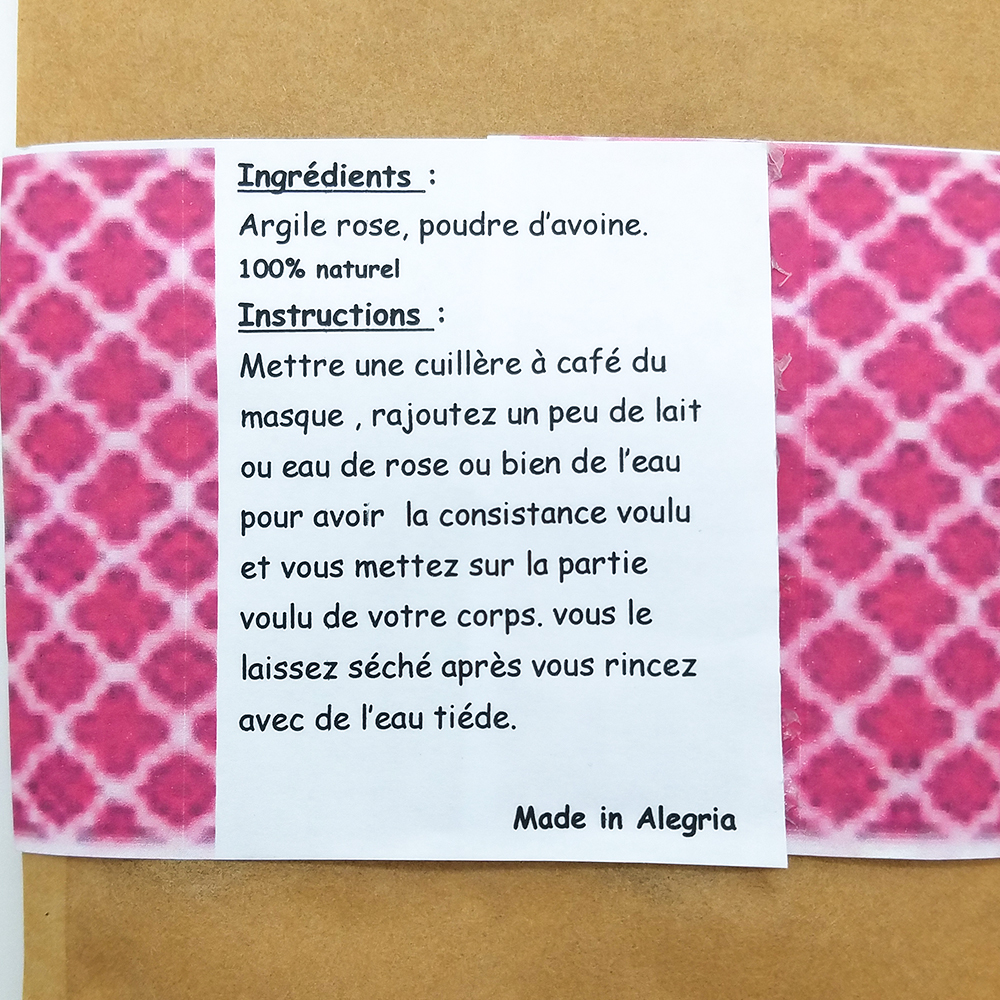 Ingrédients :
Argile rose, poudre d'avoine.
100% naturel
Instructions :
Mettre une cuillère à café du
masque , rajoutez un peu de lait
ou eau de rose ou bien de l'eau
pour avoir  la consistance voulu
et vous mettez sur la partie
voulu de votre corps. vous le
laissez séché après vous rincez
avec de l'eau tiéde.
Made in Alegria